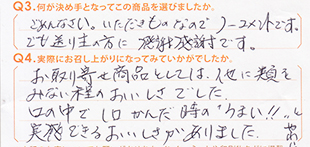 Q3.何が決め手となってこの商品を選びましたか。
ごめんなさい。いただきものなのでノーコメントです。
でも送り主の方に感謝感謝です。
Q4.実際にお召し上がりになってみていかがでしたか。
お取り寄せ商品としては、他に類を
みない程のおいしさでした。
口の中で1口かんだ時の"うまい!!"と
実感できるおいしさがありました。